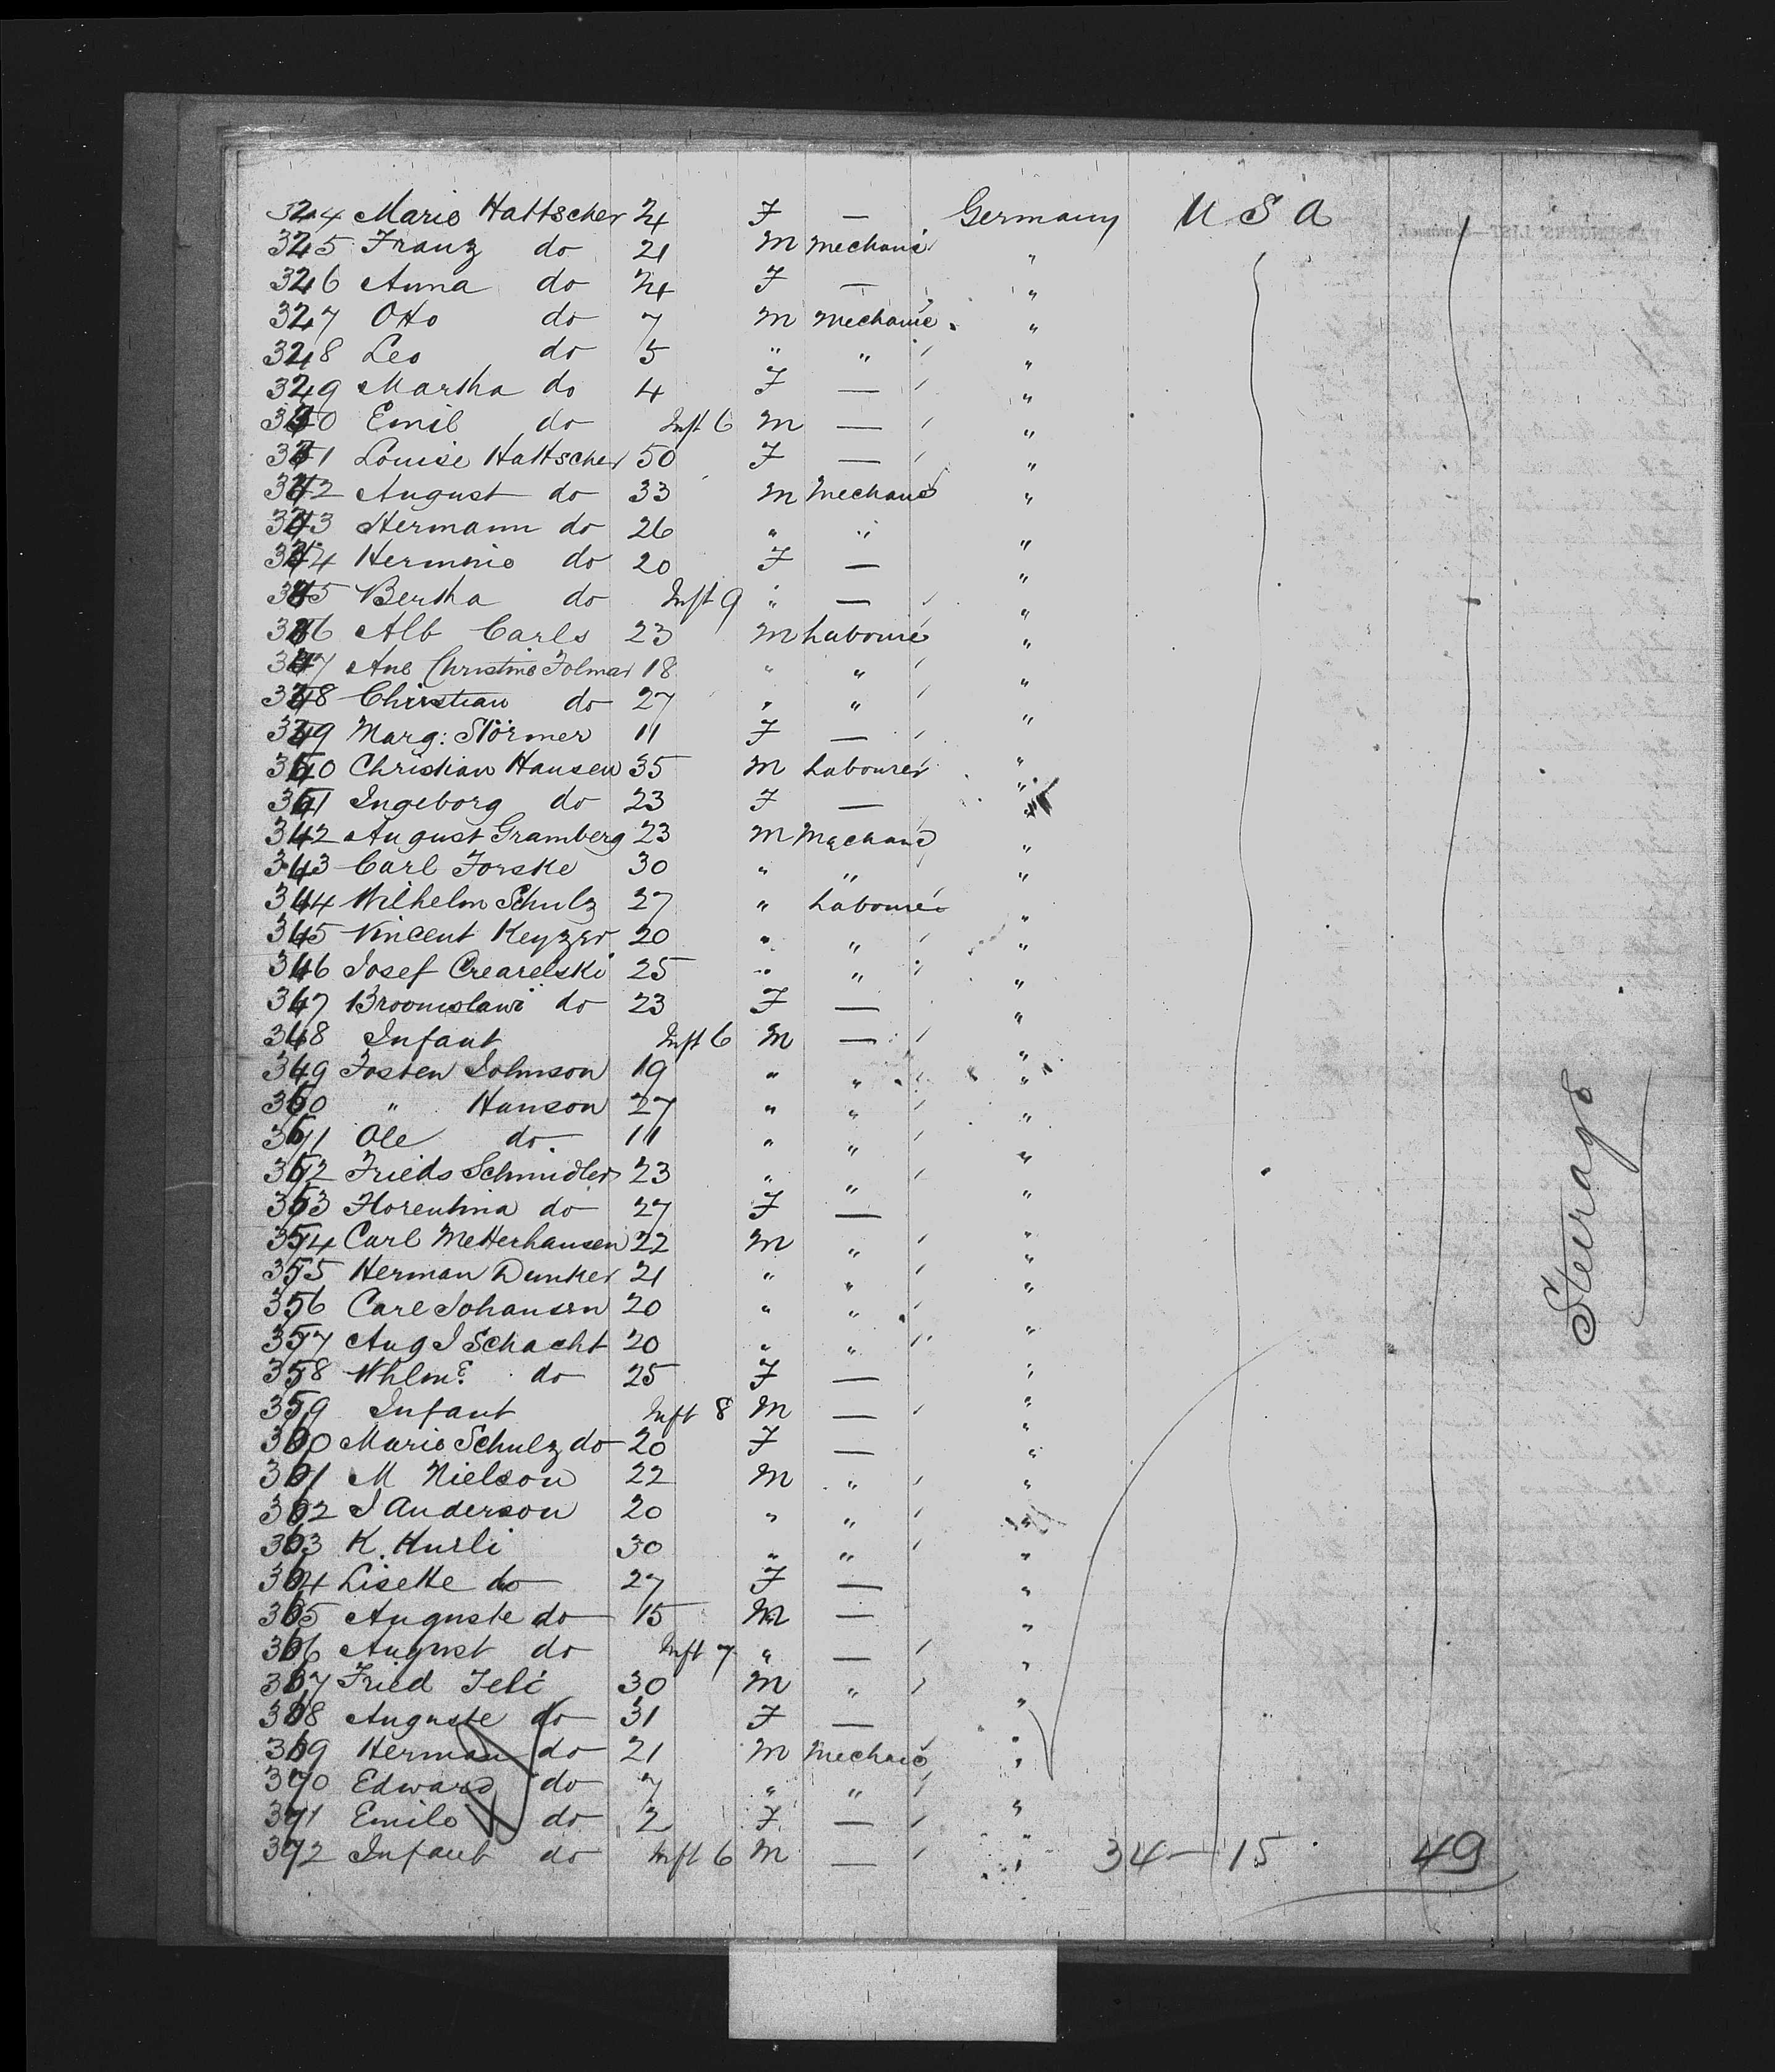 324 Marie Hattscher 24 F — Germany U S A
325 Franz do 21 M Mechanic "
326 Anna do 24 F — "
327 Otto do 7 M Mechanic "
328 Leo do 5 " " "
329 Martha do 4 F — "
330 Emil do Inft 6 M — "
331 Louise Hattscher 50 F — "
332 August do 33 M Mechanic "
333 Hermann do 26 " " "
334 Hermine do 20 F — "
335 Bertha do Inft 9 " — "
336 Alb Carls 23 M Labourer "
337 Ane Christine Folmar 18 " " "
338 Christian do 27 " " "
339 Marg: Störmer 11 F — "
340 Christian Hansen 35 M Labourer "
341 Ingeborg do 23 F — "
342 August Gramberg 23 M Mechanic "
343 Carl Forske 30 " " "
344 Wilhelm Schulz 27 " Labourer "
345 Vincent Keyzer 20 " " "
346 Josef Crearelski 25 " " "
347 Broomslawi do 23 F — "
348 Infant Inft 6 M — "
349 Fosten Johnson 19 " " "
350 " Hanson 27 " " "
351 Ole do 11 " " "
352 Frieds Schmidler 23 " " "
353 Florentina do 27 F — "
354 Carl Metterhausen 22 M " "
355 Herman Dunker 21 " " "
356 Carl Johansen 20 " " "
357 Aug J Schacht 20 " " "
358 Whlme do 25 F — "
359 Infant Inft 8 M — "
360 Marie Schulz do 20 F — "
361 M Nielson 22 M " "
362 J Anderson 20 " " "
363 K. Kurli 30 " " "
364 Lisette do 27 F — "
365 Auguste do 15 M — "
366 August do Inft 7 " — "
367 Fried 30 M " "
368 Auguste do 31 F — "
369 Herman do 21 M Mechanic "
370 Edward do 7 " " "
371 Emilo do 2 F — "
372 Infant do Inft 6 M — " 34 — 15 49
Steerage